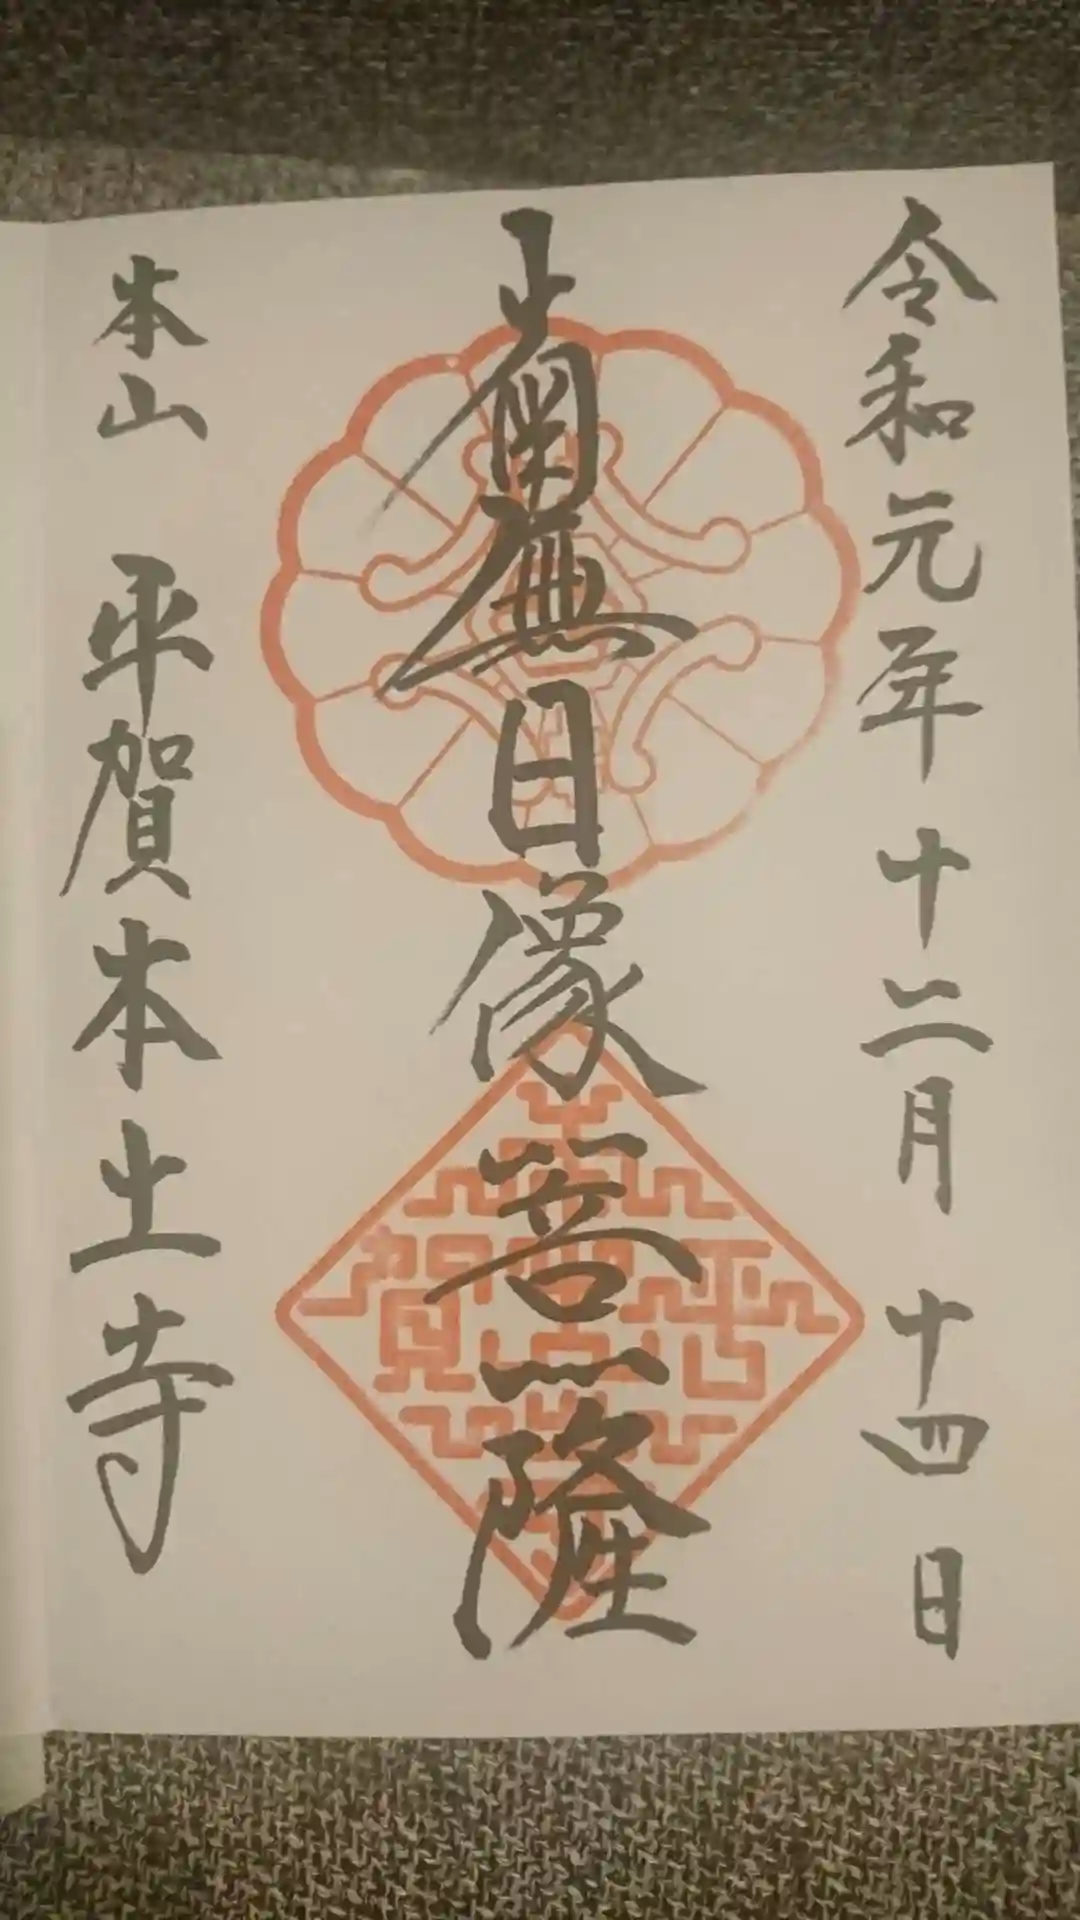 令和元年 十二月 十四日
南無日像菩薩
本山 平賀本土寺